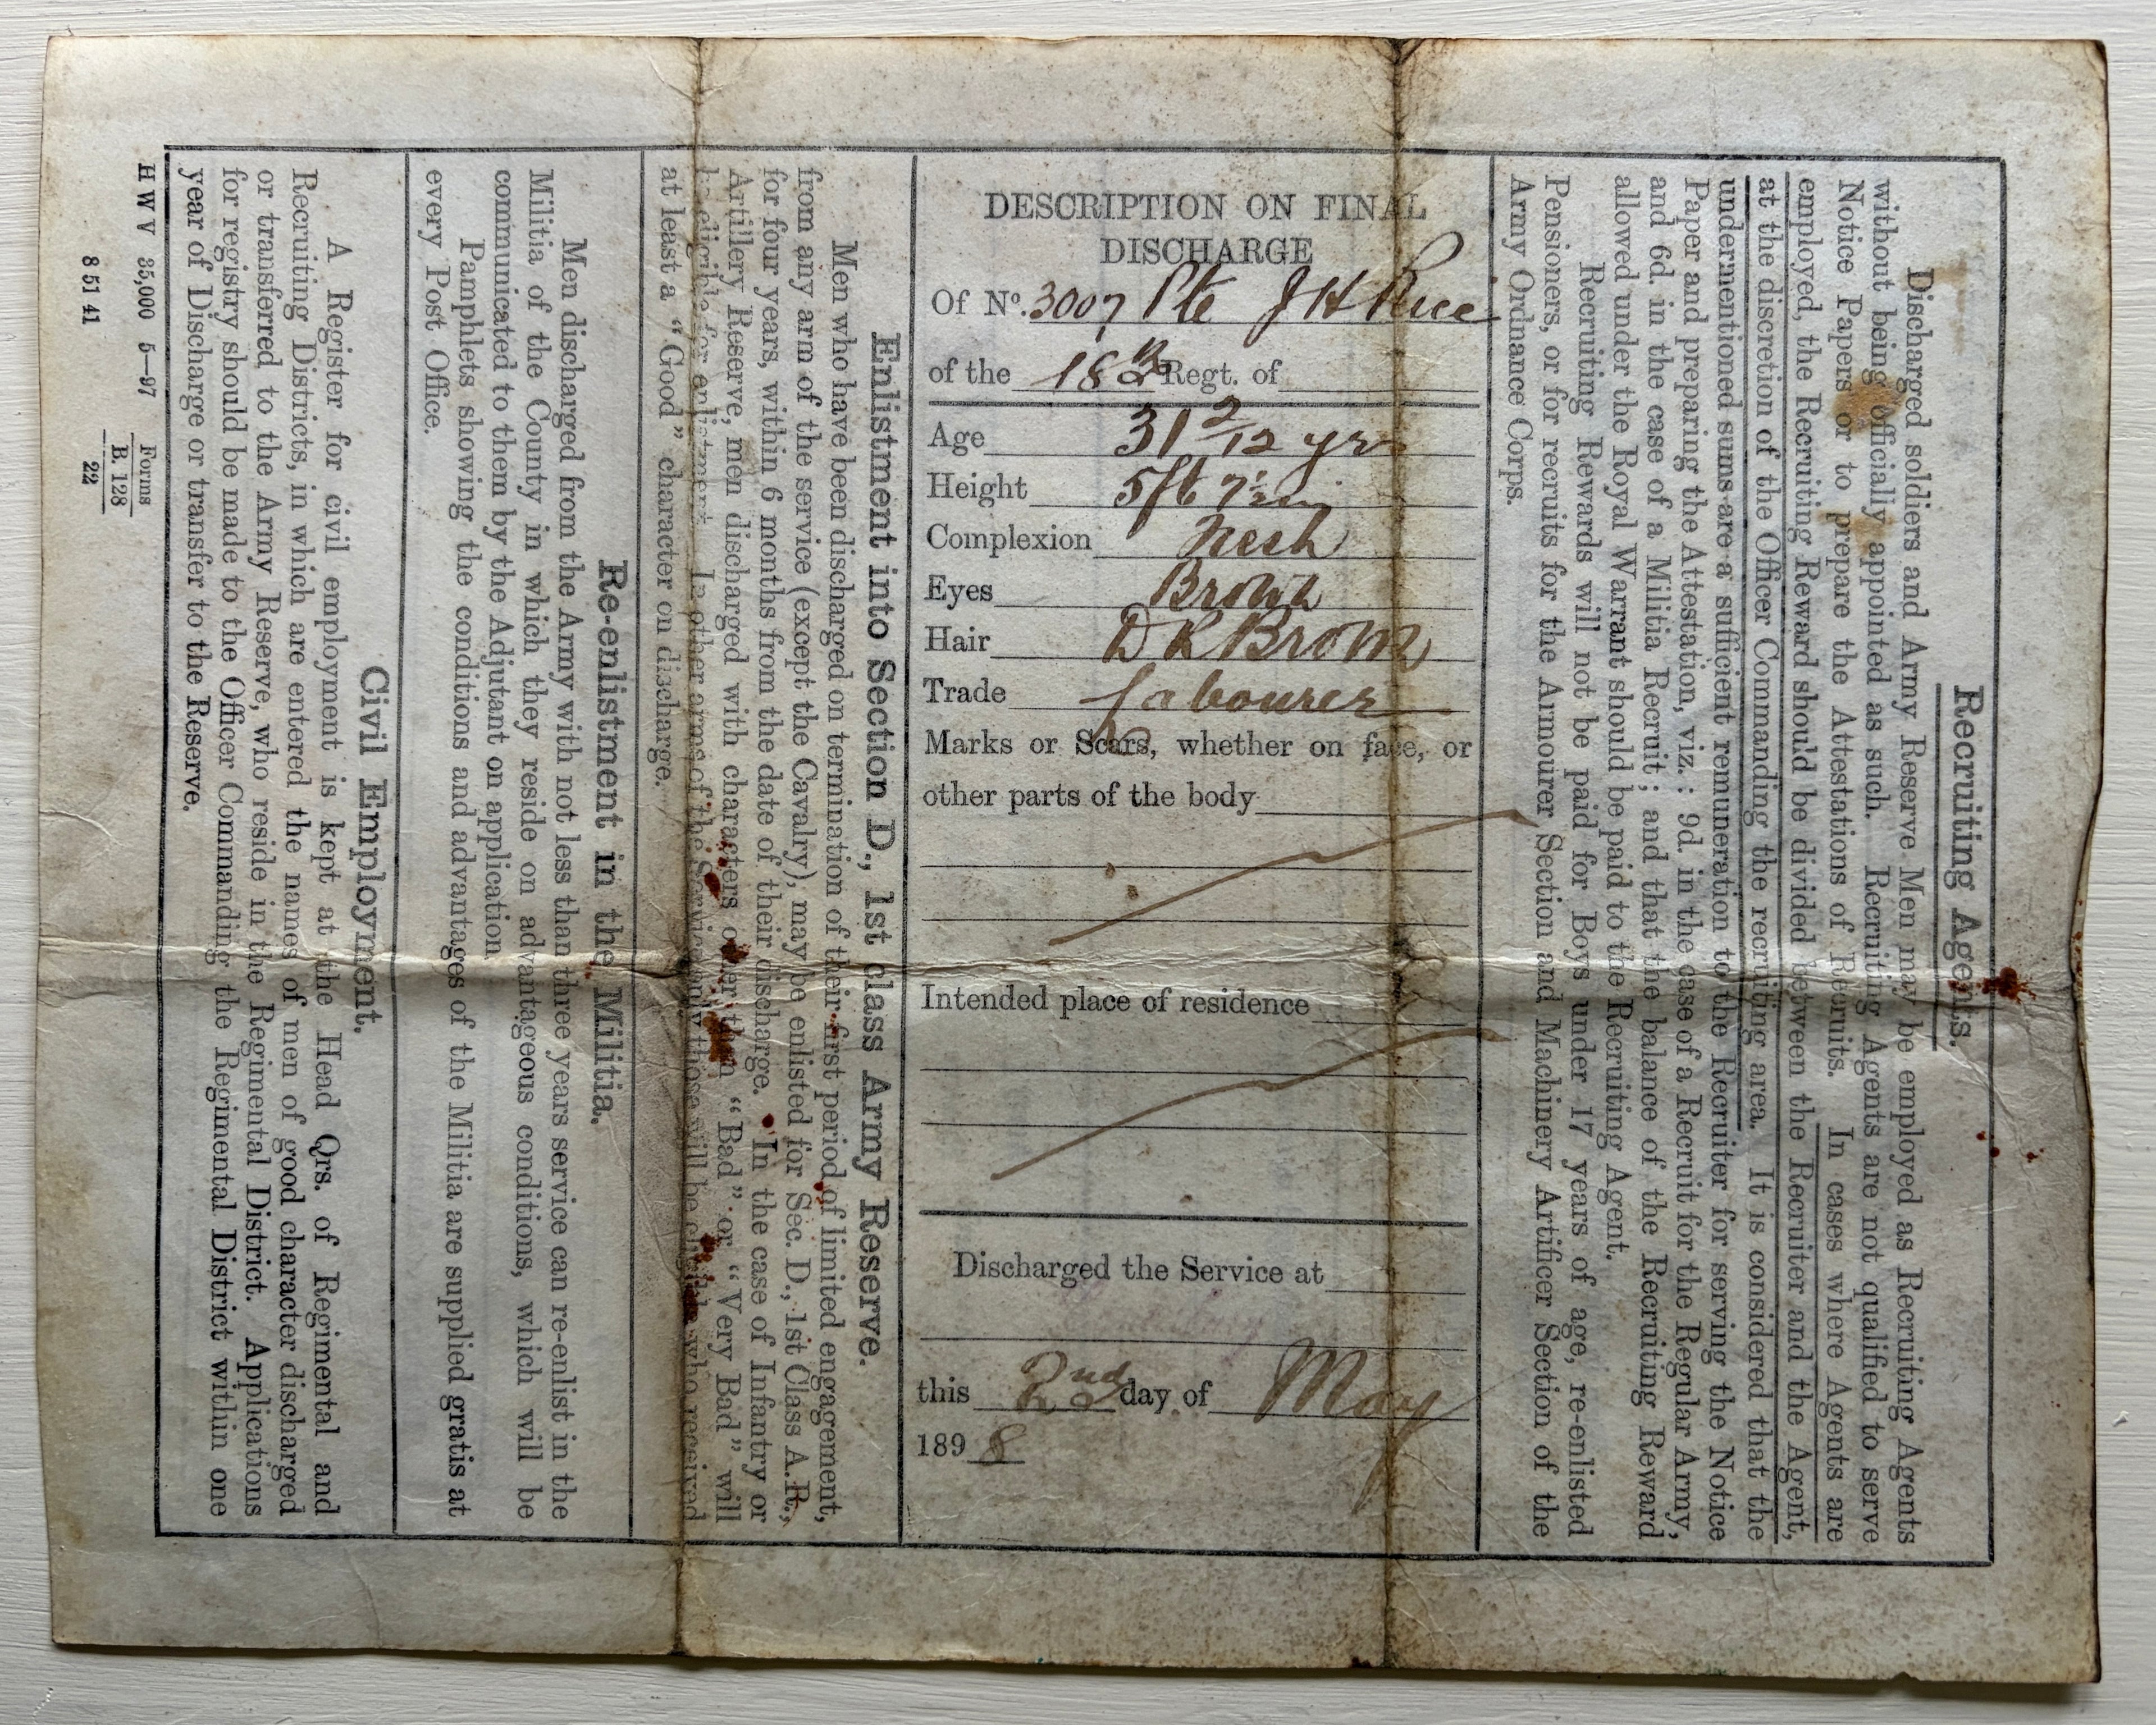 Recruiting Agents.
Discharged soldiers and Army Reserve Men may be employed as Recruiting Agents
without being officially appointed as such. Recruiting Agents are not qualified to serve
Notice Papers or to prepare the Attestations of Recruits. In cases where Agents are
employed, the Recruiting Reward should be divided between the Recruiter and the Agent,
at the discretion of the Officer Commanding the recruiting area. It is considered that the
undermentioned sums are a sufficient remuneration to the Recruiter for serving the Notice
Paper and preparing the Attestation, viz. : 9d. in the case of a Recruit for the Regular Army,
and 6d. in the case of a Militia Recruit ; and that the balance of the Recruiting Reward
allowed under the Royal Warrant should be paid to the Recruiting Agent.
Recruiting Rewards will not be paid for Boys under 17 years of age, re-enlisted
Pensioners, or for recruits for the Armourer Section and Machinery Artificer Section of the
Army Ordnance Corps.
DESCRIPTION ON FINAL
DISCHARGE
Of No. 3007 Pte J H Rice
of the 18th Regt. of
Age 31 2/12 yrs
Height 5ft 7½in
Complexion Fresh
Eyes Brown
Hair DK Brown
Trade Labourer
Marks or Scars, whether on face, or
other parts of the body
Intended place of residence
Discharged the Service at
this 2nd day of May
1898
Enlistment into Section D., 1st class Army Reserve.
Men who have been discharged on termination of their first period of limited engagement,
from any arm of the service (except the Cavalry), may be enlisted for Sec. D., 1st Class A.R.,
for four years, within 6 months from the date of their discharge. In the case of Infantry or
Artillery Reserve, men discharged with characters other than “Bad” or “Very Bad” will
be eligible for enlistment. In other arms of the Service only those will be eligible who received
at least a “Good” character on discharge.
Re-enlistment in the Militia.
Men discharged from the Army with not less than three years service can re-enlist in the
Militia of the County in which they reside on advantageous conditions, which will be
communicated to them by the Adjutant on application.
Pamphlets showing the conditions and advantages of the Militia are supplied gratis at
every Post Office.
Civil Employment.
A Register for civil employment is kept at the Head Qrs. of Regimental and
Recruiting Districts, in which are entered the names of men of good character discharged
or transferred to the Army Reserve, who reside in the Regimental District. Applications
for registry should be made to the Officer Commanding the Regimental District within one
year of Discharge or transfer to the Reserve.
H W V 35,000 5—97 Forms
B. 128
22
8 51 41